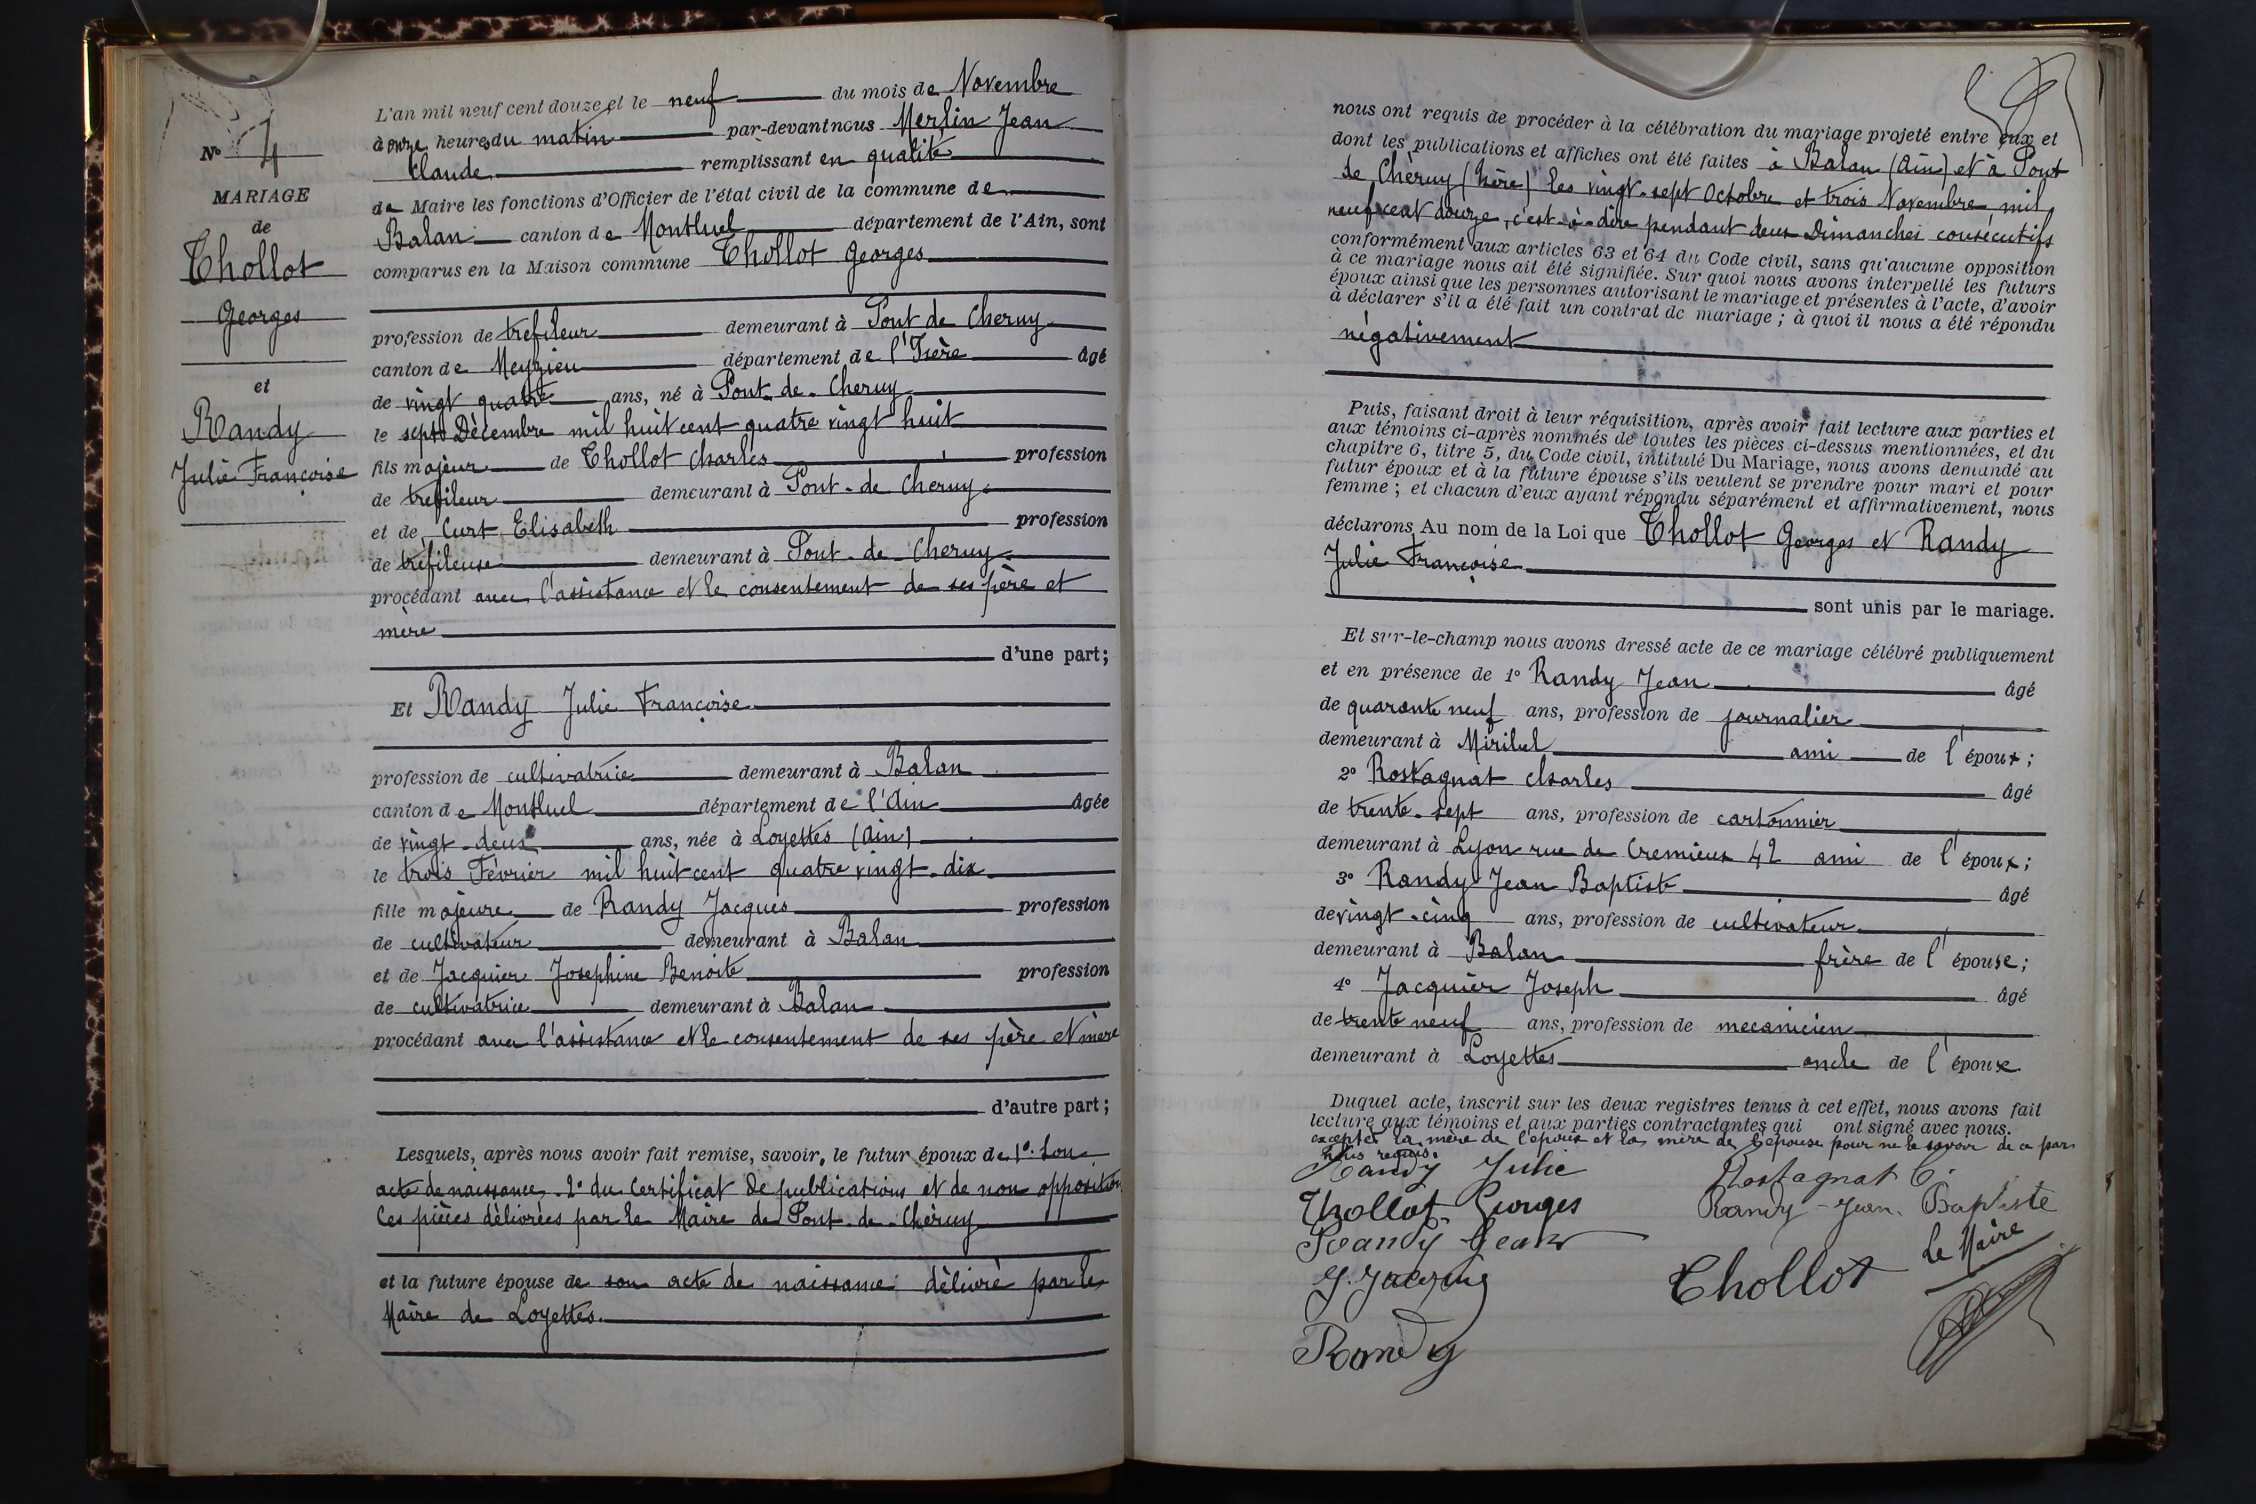 N° 4
MARIAGE
de
Thollot
Georges
et
Randy
Julie Françoise
L'an mil neuf cent douze et le neuf du mois de Novembre
à onze heures du matin par-devant nous Merlin Jean
Claude remplissant en qualité
de Maire les fonctions d'Officier de l'état civil de la commune de
Balan canton de Montluel département de l'Ain, sont
comparus en la Maison commune Thollot Georges
profession de trefileur demeurant à Pont de Cheruy
canton de Meyzieu département de l'Isère âgé
de vingt quatre ans, né à Pont-de-Cheruy
le sept Décembre mil huit cent quatre vingt huit
fils majeur de Thollot Charles profession
de trefileur demeurant à Pont-de Cheruy
et de Curt Elisabeth profession
de tréfileuse demeurant à Pont-de-Cheruy
procédant avec l'assistance et le consentement de ses père et
mère
d'une part;
Et Randy Julie Françoise
profession de cultivatrice demeurant à Balan
canton de Montluel département de l'Ain âgée
de vingt-deux ans, née à Loyettes (Ain)
le trois Février mil huit cent quatre vingt-dix
fille majeure de Randy Jacques profession
de cultivateur demeurant à Balan
et de Jacquier Josephine Benoite profession
de cultivatrice demeurant à Balan
procédant avec l'assistance et le consentement de ses père et mère
d'autre part;
Lesquels, après nous avoir fait remise, savoir, le futur époux de 1° Son
acte de naissance. 2° du Certificat de publications et de non opposition
Ces pièces délivrées par le Maire de Pont-de-Chéruy
et la future épouse de son acte de naissance délivré par le
Maire de Loyettes.
nous ont requis de procéder à la célébration du mariage projeté entre eux et
dont les publications et affiches ont été faites à Balan (Ain) et à Pont
de Chèruy (Isère) les vingt-sept Octobre et trois Novembre mil
neuf cent douze, c'est-à-dire pendant deux Dimanches consécutifs
conformément aux articles 63 et 64 du Code civil, sans qu'aucune opposition
à ce mariage nous ait été signifiée. Sur quoi nous avons interpellé les futurs
époux ainsi que les personnes autorisant le mariage et présentes à l'acte, d'avoir
à déclarer s'il a été fait un contrat de mariage; à quoi il nous a été répondu
négativement
Puis, faisant droit à leur réquisition, après avoir fait lecture aux parties et
aux témoins ci-après nommés de toutes les pièces ci-dessus mentionnées, et du
chapitre 6, titre 5, du Code civil, intitulé Du Mariage, nous avons demandé au
futur époux et à la future épouse s'ils veulent se prendre pour mari et pour
femme; et chacun d'eux ayant répondu séparément et affirmativement, nous
déclarons Au nom de la Loi que Thollot Georges et Randy
Julie Françoise
sont unis par le mariage.
Et sur-le-champ nous avons dressé acte de ce mariage célébré publiquement
et en présence de 1° Randy Jean âgé
de quarante neuf ans, profession de journalier
demeurant à Miribel ami de l'époux;
2° Rostagnat Charles âgé
de trente-sept ans, profession de cartonnier
demeurant à Lyon rue de Cremieux 42 ami de l'époux;
3° Randy Jean Baptiste âgé
de vingt-cinq ans, profession de cultivateur
demeurant à Balan frère de l'épouse;
4° Jacquier Joseph âgé
de trente neuf ans, profession de mecanicien
demeurant à Loyettes oncle de l'épouse
Duquel acte, inscrit sur les deux registres tenus à cet effet, nous avons fait
lecture aux témoins et aux parties contractantes qui ont signé avec nous.
excepter la mère de l'époux et la mère de l'épouse pour ne le savoir de ce par
nous requis.
Randy Julie Rostagnat C.
Thollot Georges Randy-Jean. Baptiste
Randy Jean Le Maire
Thollot
Randy